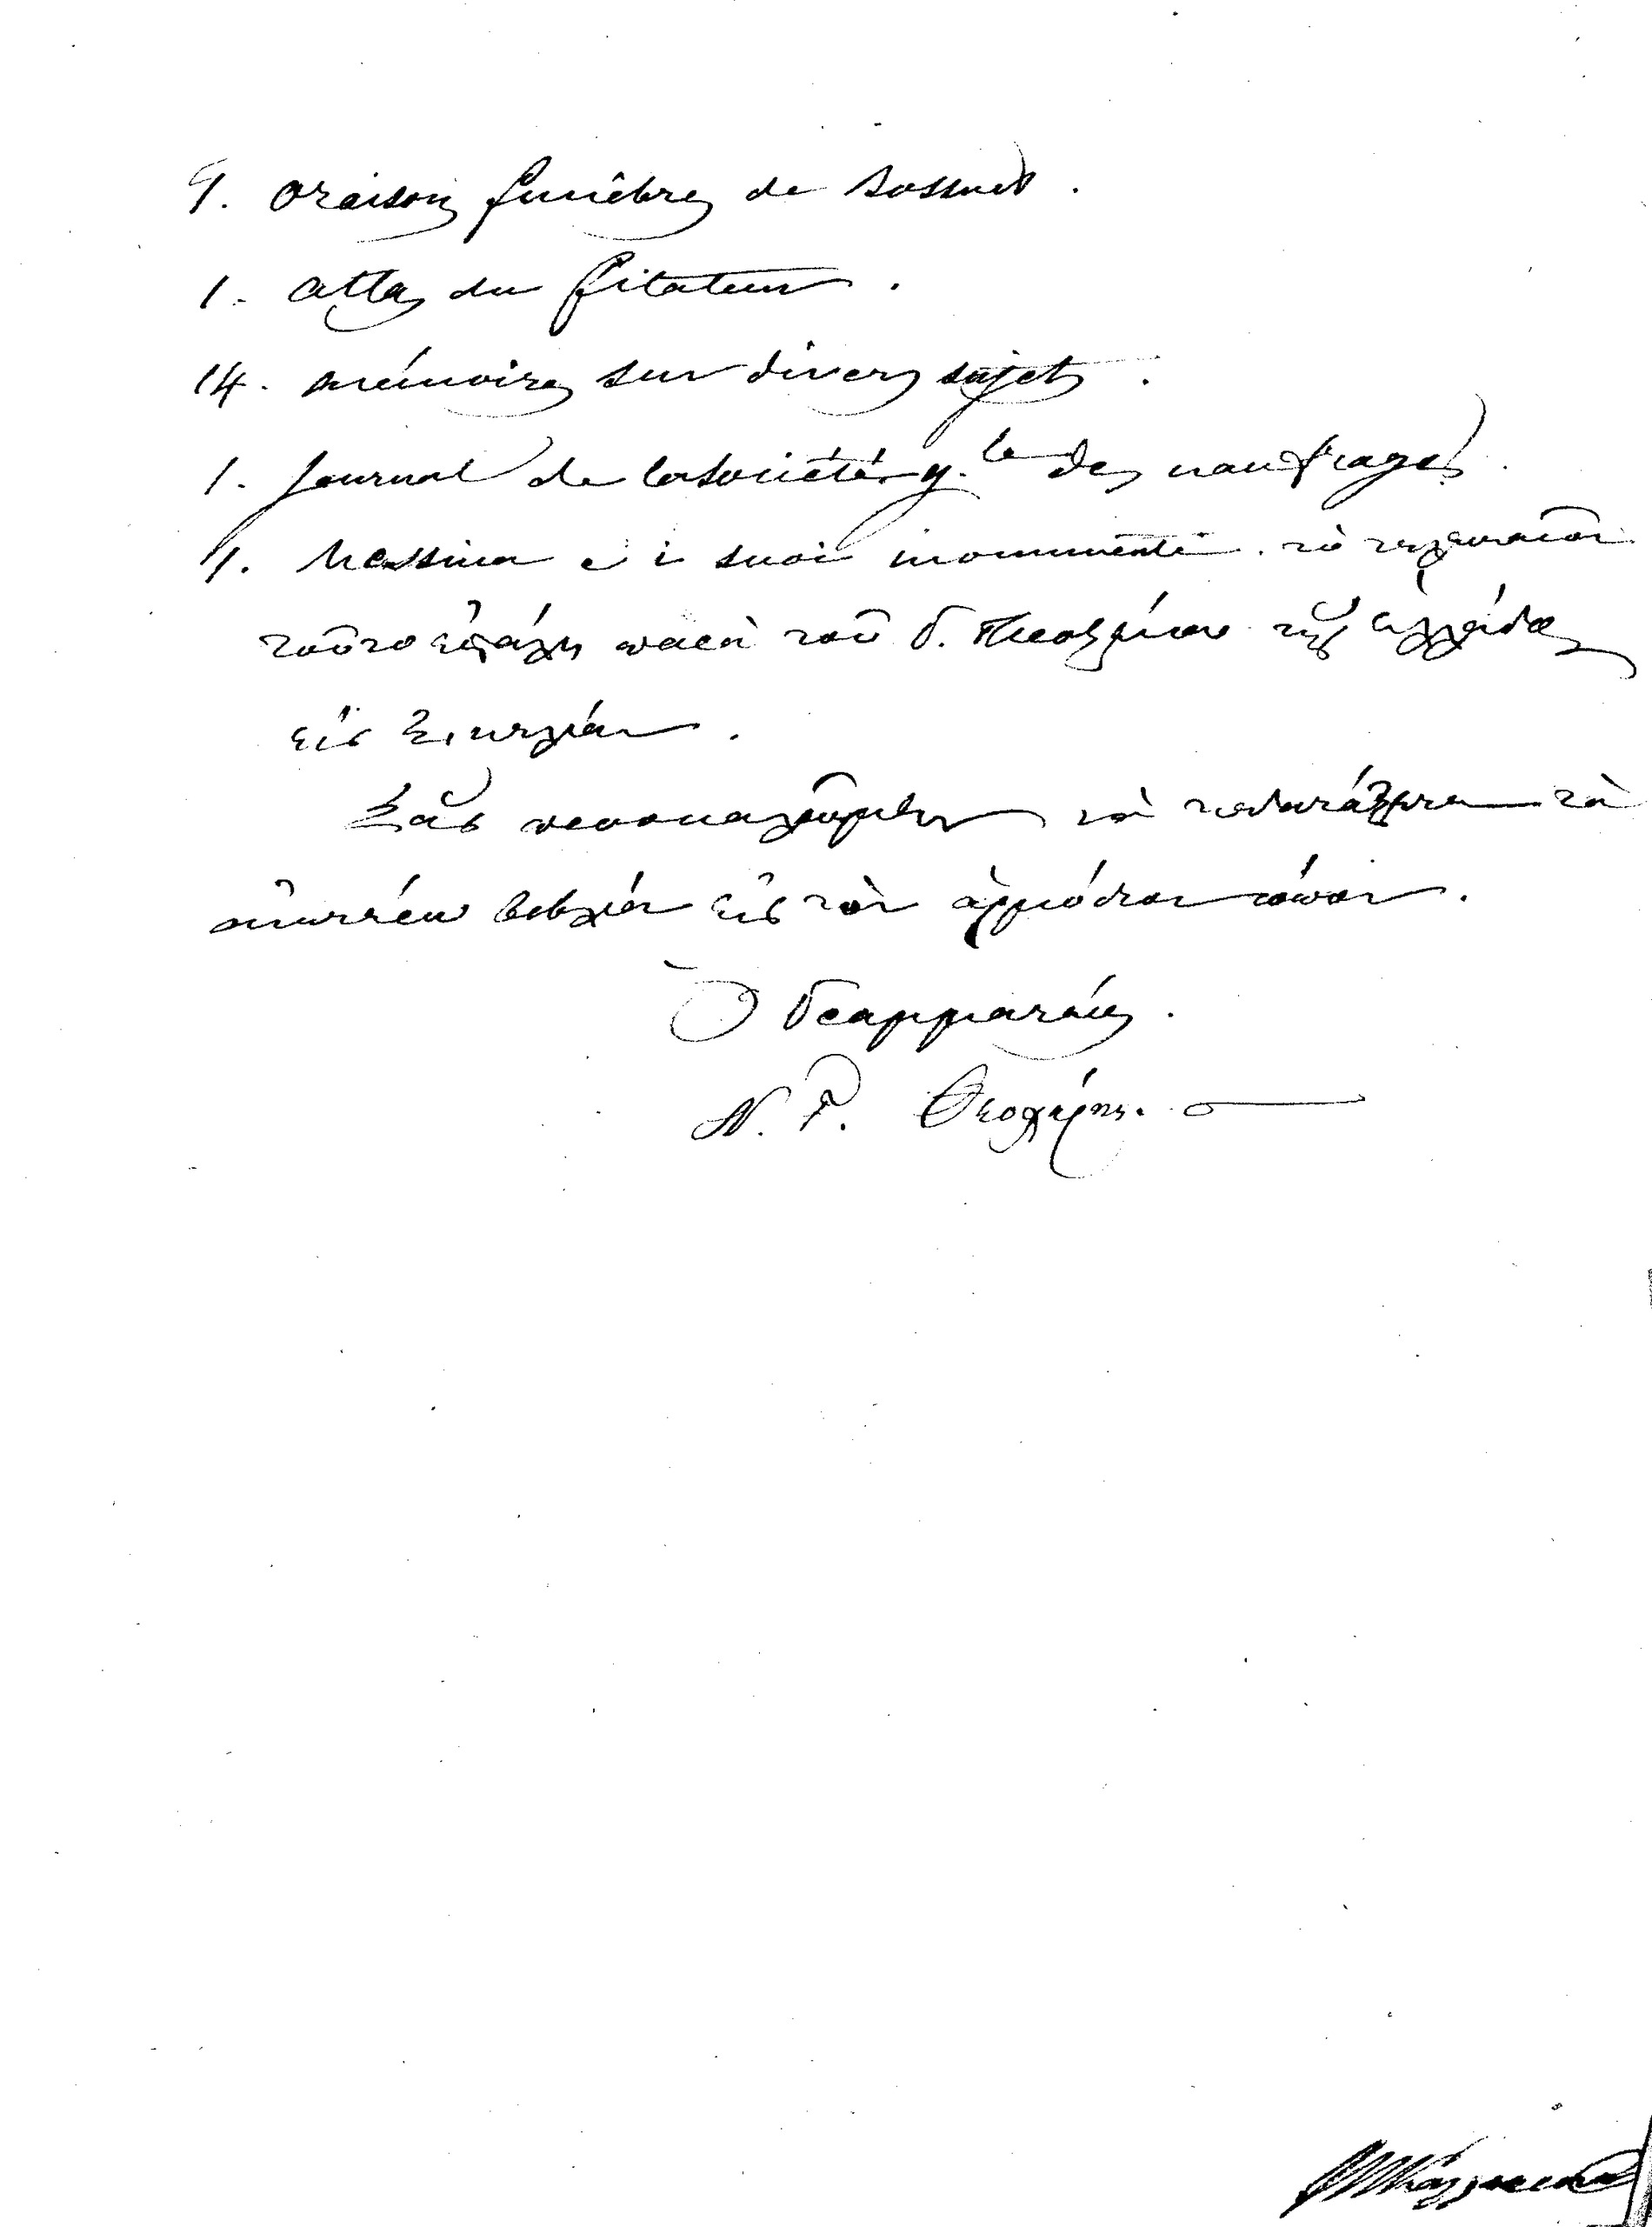 9. Oraisons funèbres de Bossuet.
1. atlas du filateur.
14. mémoires sur divers sujets.
1. Journal de la Société g.le des naufrages.
1. Messina e i suoi monumenti. τὸ τελευταῖον
τοῦτο ἐστάλη παρὰ τοῦ Γ. Προξένου τῆς Ἑλλάδος
εἰς Σικελίαν.
Σᾶς προσκαλοῦμεν νὰ τὰ
βιβλία εἰς τὸν ἁρμόδιον τόπον.
Ὁ Γραμματεύς.
Ν. Γ. Θεοχάρης.